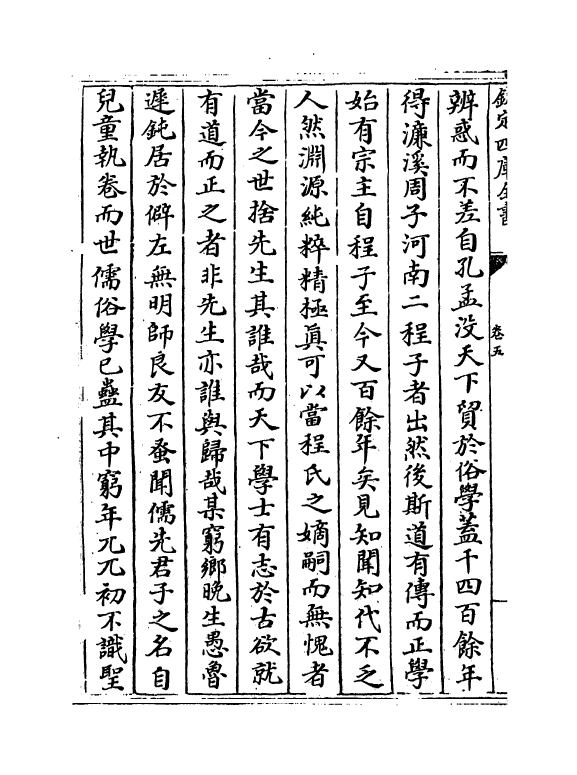 欽定四庫全書
卷五
辨惑而不差自孔孟没天下貿於俗學蓋千四百餘年
得濂溪周子河南二程子者出然後斯道有傳而正學
始有宗主自程子至今又百餘年矣見知聞知代不乏
人然淵源純粹精極真可以當程氏之嫡嗣而無愧者
當今之世捨先生其誰哉而天下學士有志於古欲就
有道而正之者非先生亦誰與歸哉某窮鄉晚生愚魯
遲鈍居於僻左無明師良友不蚤聞儒先君子之名自
兒童執卷而世儒俗學已蠱其中窮年兀兀初不識聖